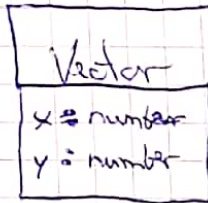 Vector
x : number
y : number